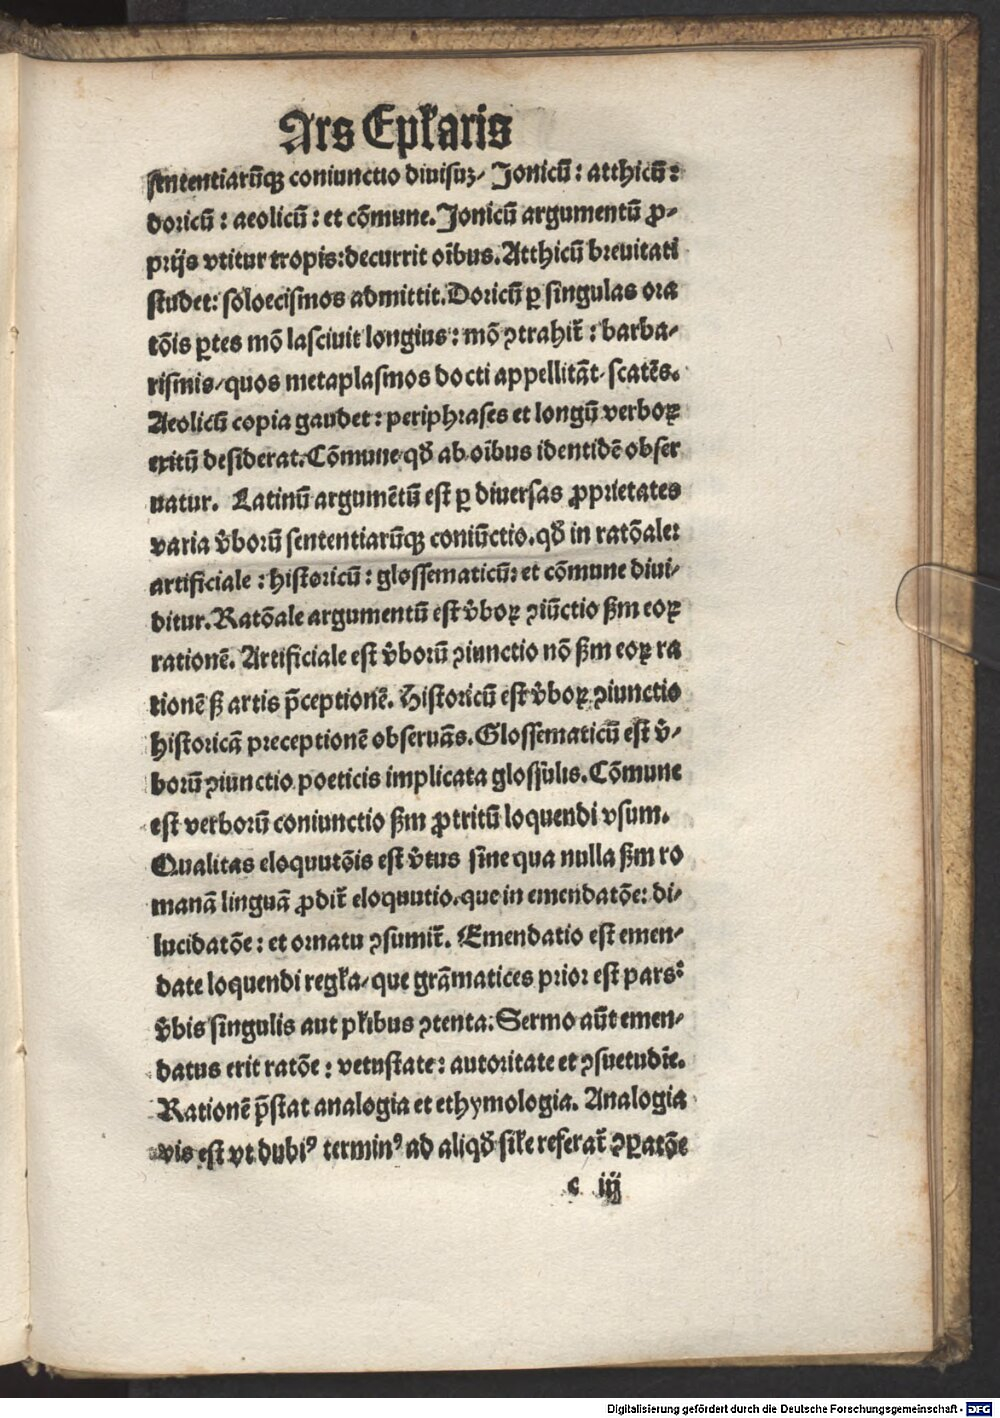 Ars Epl̄aris
sententiarūqꝫ coniunctio diuisuꝫ/ Jonicū: atthicū:
doricū: aeolicū: et cōmune. Jonicū argumentū ꝓ-
prijs vtitur tropis: decurrit oībus. Atthicū breuitati
studet: soloecismos admittit. Doricū ꝑ singulas ora
tōis ꝑtes mō lasciuit longius: mō ꝯtrahit᷑: barba/
rismis/ quos metaplasmos docti appellitāt/ scatēs.
Aeolicū copia gaudet: periphrases et longū verboꝝ
exitū desiderat. Cōmune qđ ab oībus identidē obser
uatur. Latinū argumētū est ꝑ diuersas ꝓprietates
varia v̄borū sententiarūqꝫ coniūctio. qđ in ratōale:
artificiale: historicū: glossematicū: et cōmune diui/
ditur. Ratōale argumentū est v̄boꝝ ꝯiūctio ẜm eoꝝ
rationē. Artificiale est v̄borū ꝯiunctio nō ẜm eoꝝ ra
tionē ẜ artis p̄ceptionē. Historicū est v̄boꝝ ꝯiunctio
historicā preceptionē obseruās. Glossematicū est v̄/
borū ꝯiunctio poeticis implicata glossulis. Cōmune
est verborū coniunctio ẜm ꝓtritū loquendi vsum.
Qualitas eloquutōis est v̄tus sine qua nulla ẜm ro
manā linguā ꝓdit᷑ eloquutio. que in emendatōe: di/
lucidatōe: et ornatu ꝯsumit᷑. Emendatio est emen/
date loquendi regl̄a/ que grāmatices prior est pars:
v̄bis singulis aut pl̄ibus ꝯtenta: Sermo aūt emen/
datus erit ratōe: vetustate: autoritate et ꝯsuetudīe.
Rationē p̄stat analogia et ethymologia. Analogia
vis est vt dubiꝰ terminꝰ ad aliqđ sil̄e referat᷑ ꝯꝑatōe
c iij
Digitalisierung gefördert durch die Deutsche Forschungsgemeinschaft - DFG